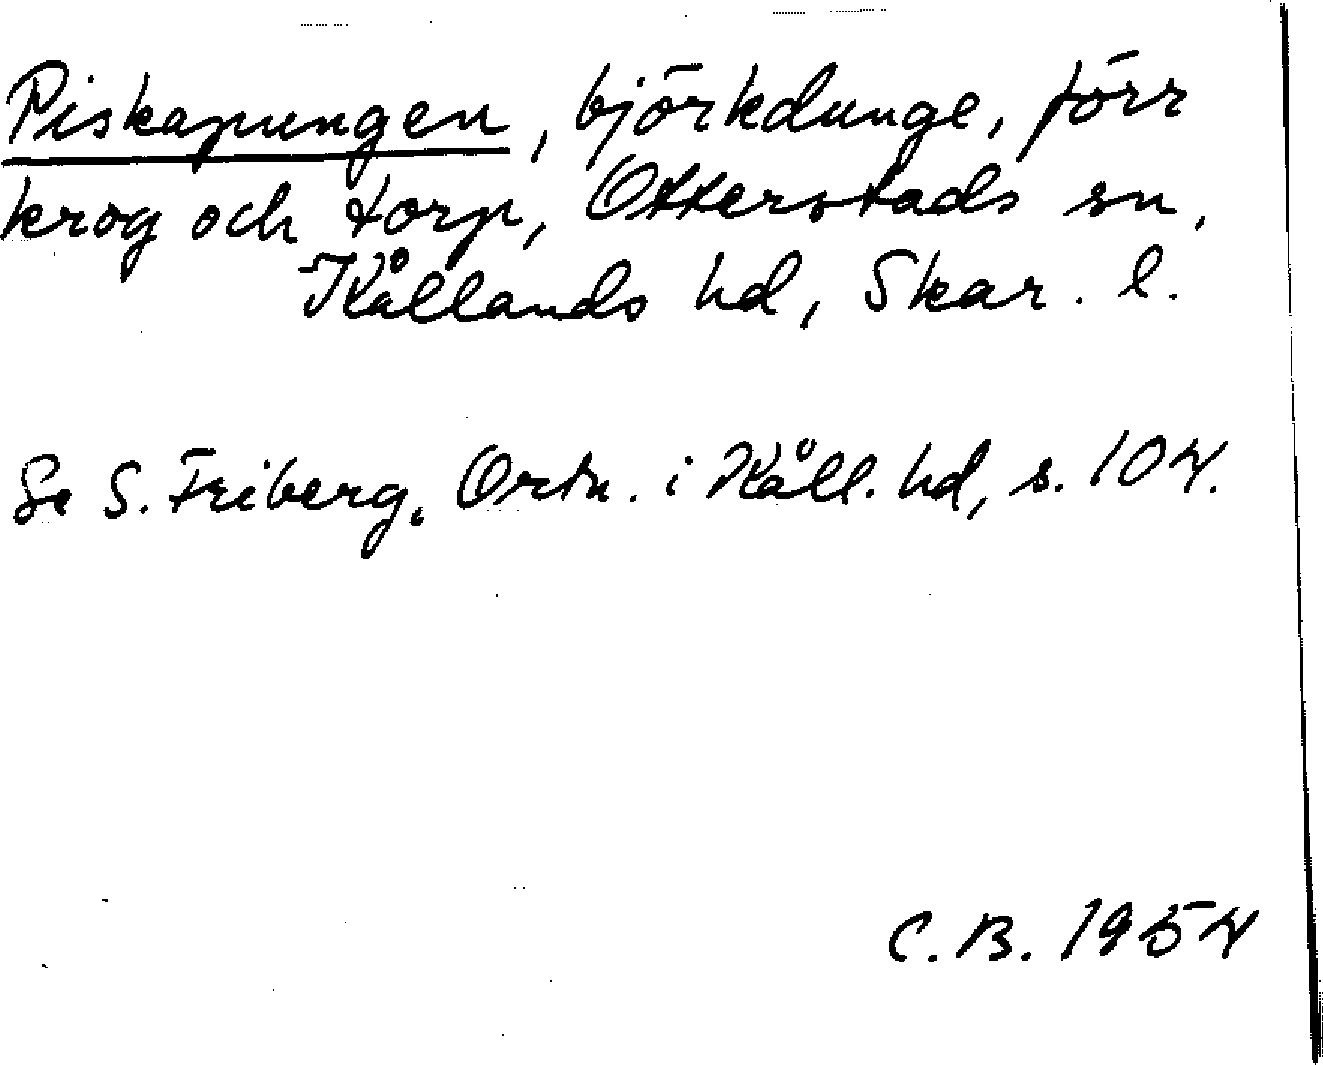 Piskapungen, björkdunge, förr
krog och torp, Otterstads sn,
Kållands hd, Skar. l.
Se S. Friberg, Ortn. i Kåll. hd, s. 104.
C. B. 1954